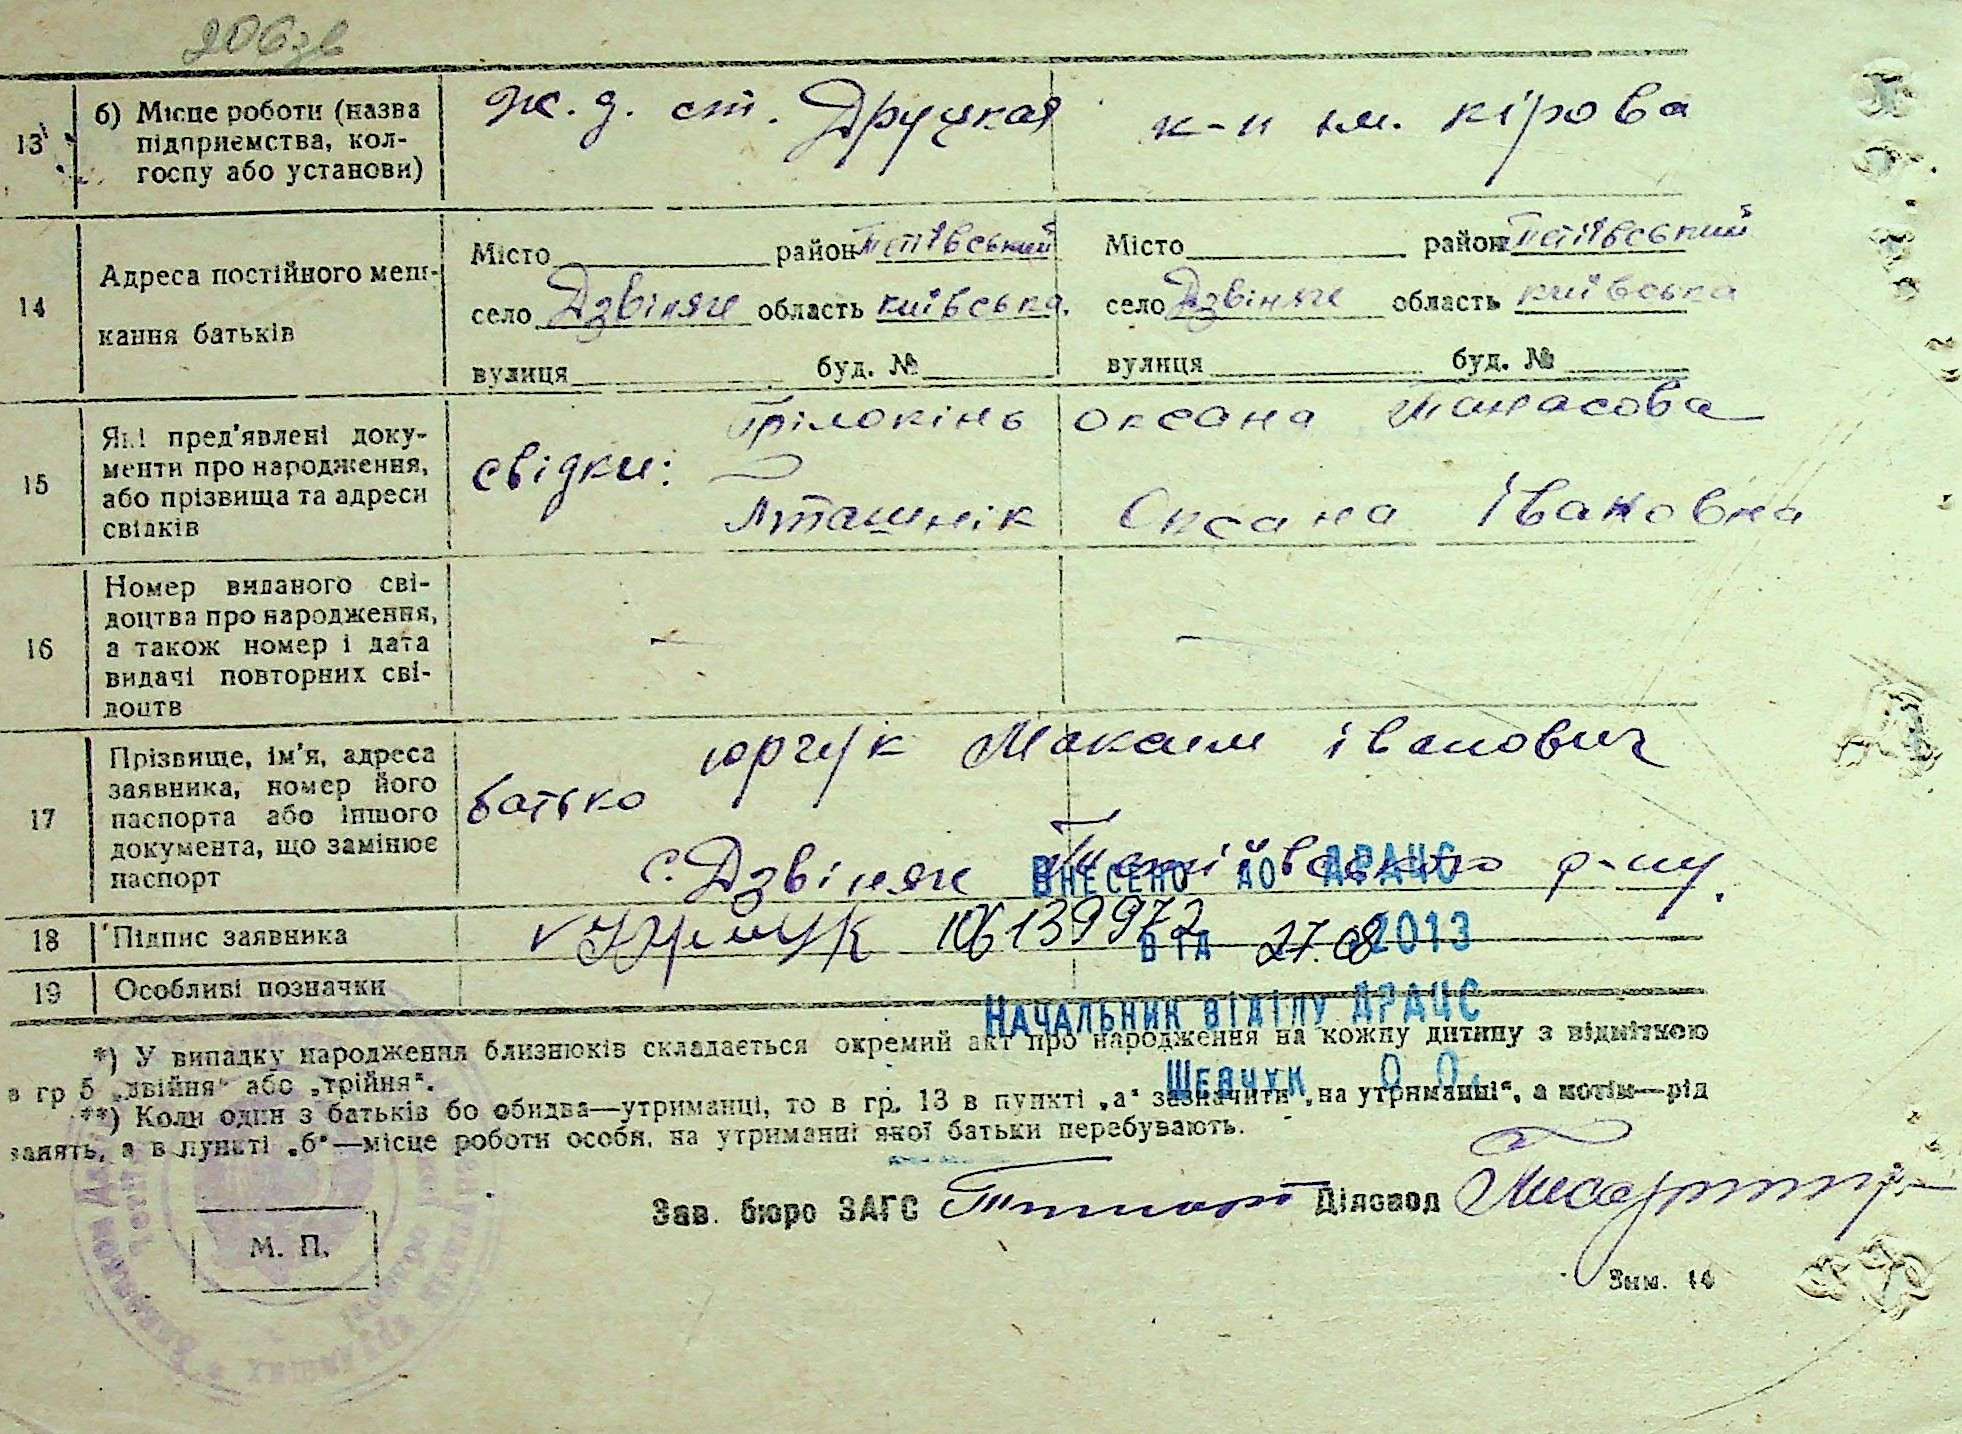 206зв
13 б) Місце роботи (назва підприємства, колгоспу або установи)
ж. д. ст. Друцкая
к-п ім. кірова
14 Адреса постійного мешкання батьків
Місто район Тетіївський
село Дзвіняче область київська.
вулиця буд. №
Місто район Тетіївський
село Дзвіняче область київська
вулиця буд. №
15 Які пред'явлені документи про народження, або прізвища та адреси свідків
свідки:
оксана Танасова
Пташнік Оксана Івановна
16 Номер виданого свідоцтва про народження, а також номер і дата видачі повторних свідоцтв
— —
17 Прізвище, ім'я, адреса заявника, номер його паспорта або іншого документа, що замінює паспорт
батько юрчук Максим іванович
с. Дзвіняче Тетіївського р-ну.
Внесено до ДРАЦС
18 Підпис заявника
v Юрчук 106139972
вта 27.08 2013
19 Особливі позначки
Начальник відділу ДРАЦС
*) У випадку народження близнюків складається окремий акт про народження на кожну дитину з відміткою
в гр 5 „двійня" або „трійня".
Шевчук О.О.
**) Коли один з батьків бо обидва—утриманці, то в гр. 13 в пункті „а" зазначити „на утриманні", а потім—рід
занять, а в пункті „б"—місце роботи особи, на утриманні якої батьки перебувають.
Зав. бюро ЗАГС
Діловод
М. П.
Зим. 14